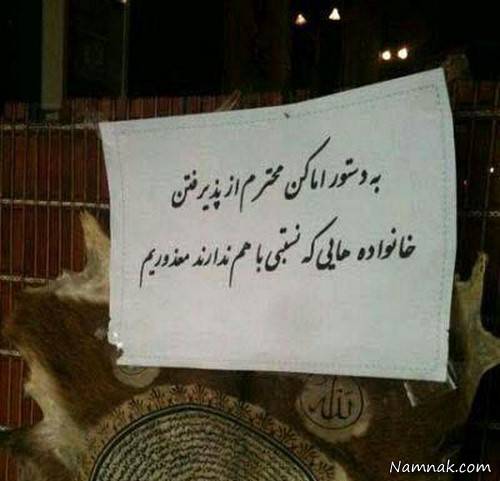 به دستور اماکن محترم از پذیرفتن
خانواده هایی که نسبتی با هم ندارند معذوریم
الله
Namnak.com